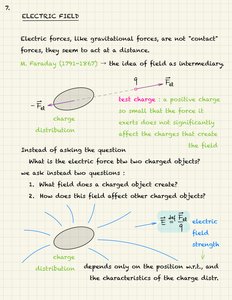 7.
ELECTRIC FIELD
Electric forces, like gravitational forces, are not "contact"
forces, they seem to act at a distance.
M. Faraday (1791-1867) → the idea of field as intermediary.
q
F el
- F el
test charge : a positive charge
so small that the force it
exerts does not significantly
affect the charges that create
the field
charge
distribution
Instead of asking the question
What is the electric force btw two charged objects?
we ask instead two questions :
1. What field does a charged object create?
2. How does this field affect other charged objects?
E def = F el / q
electric
field
strength
charge
distribution
depends only on the position w.r.t., and
the characteristics of the charge distr.